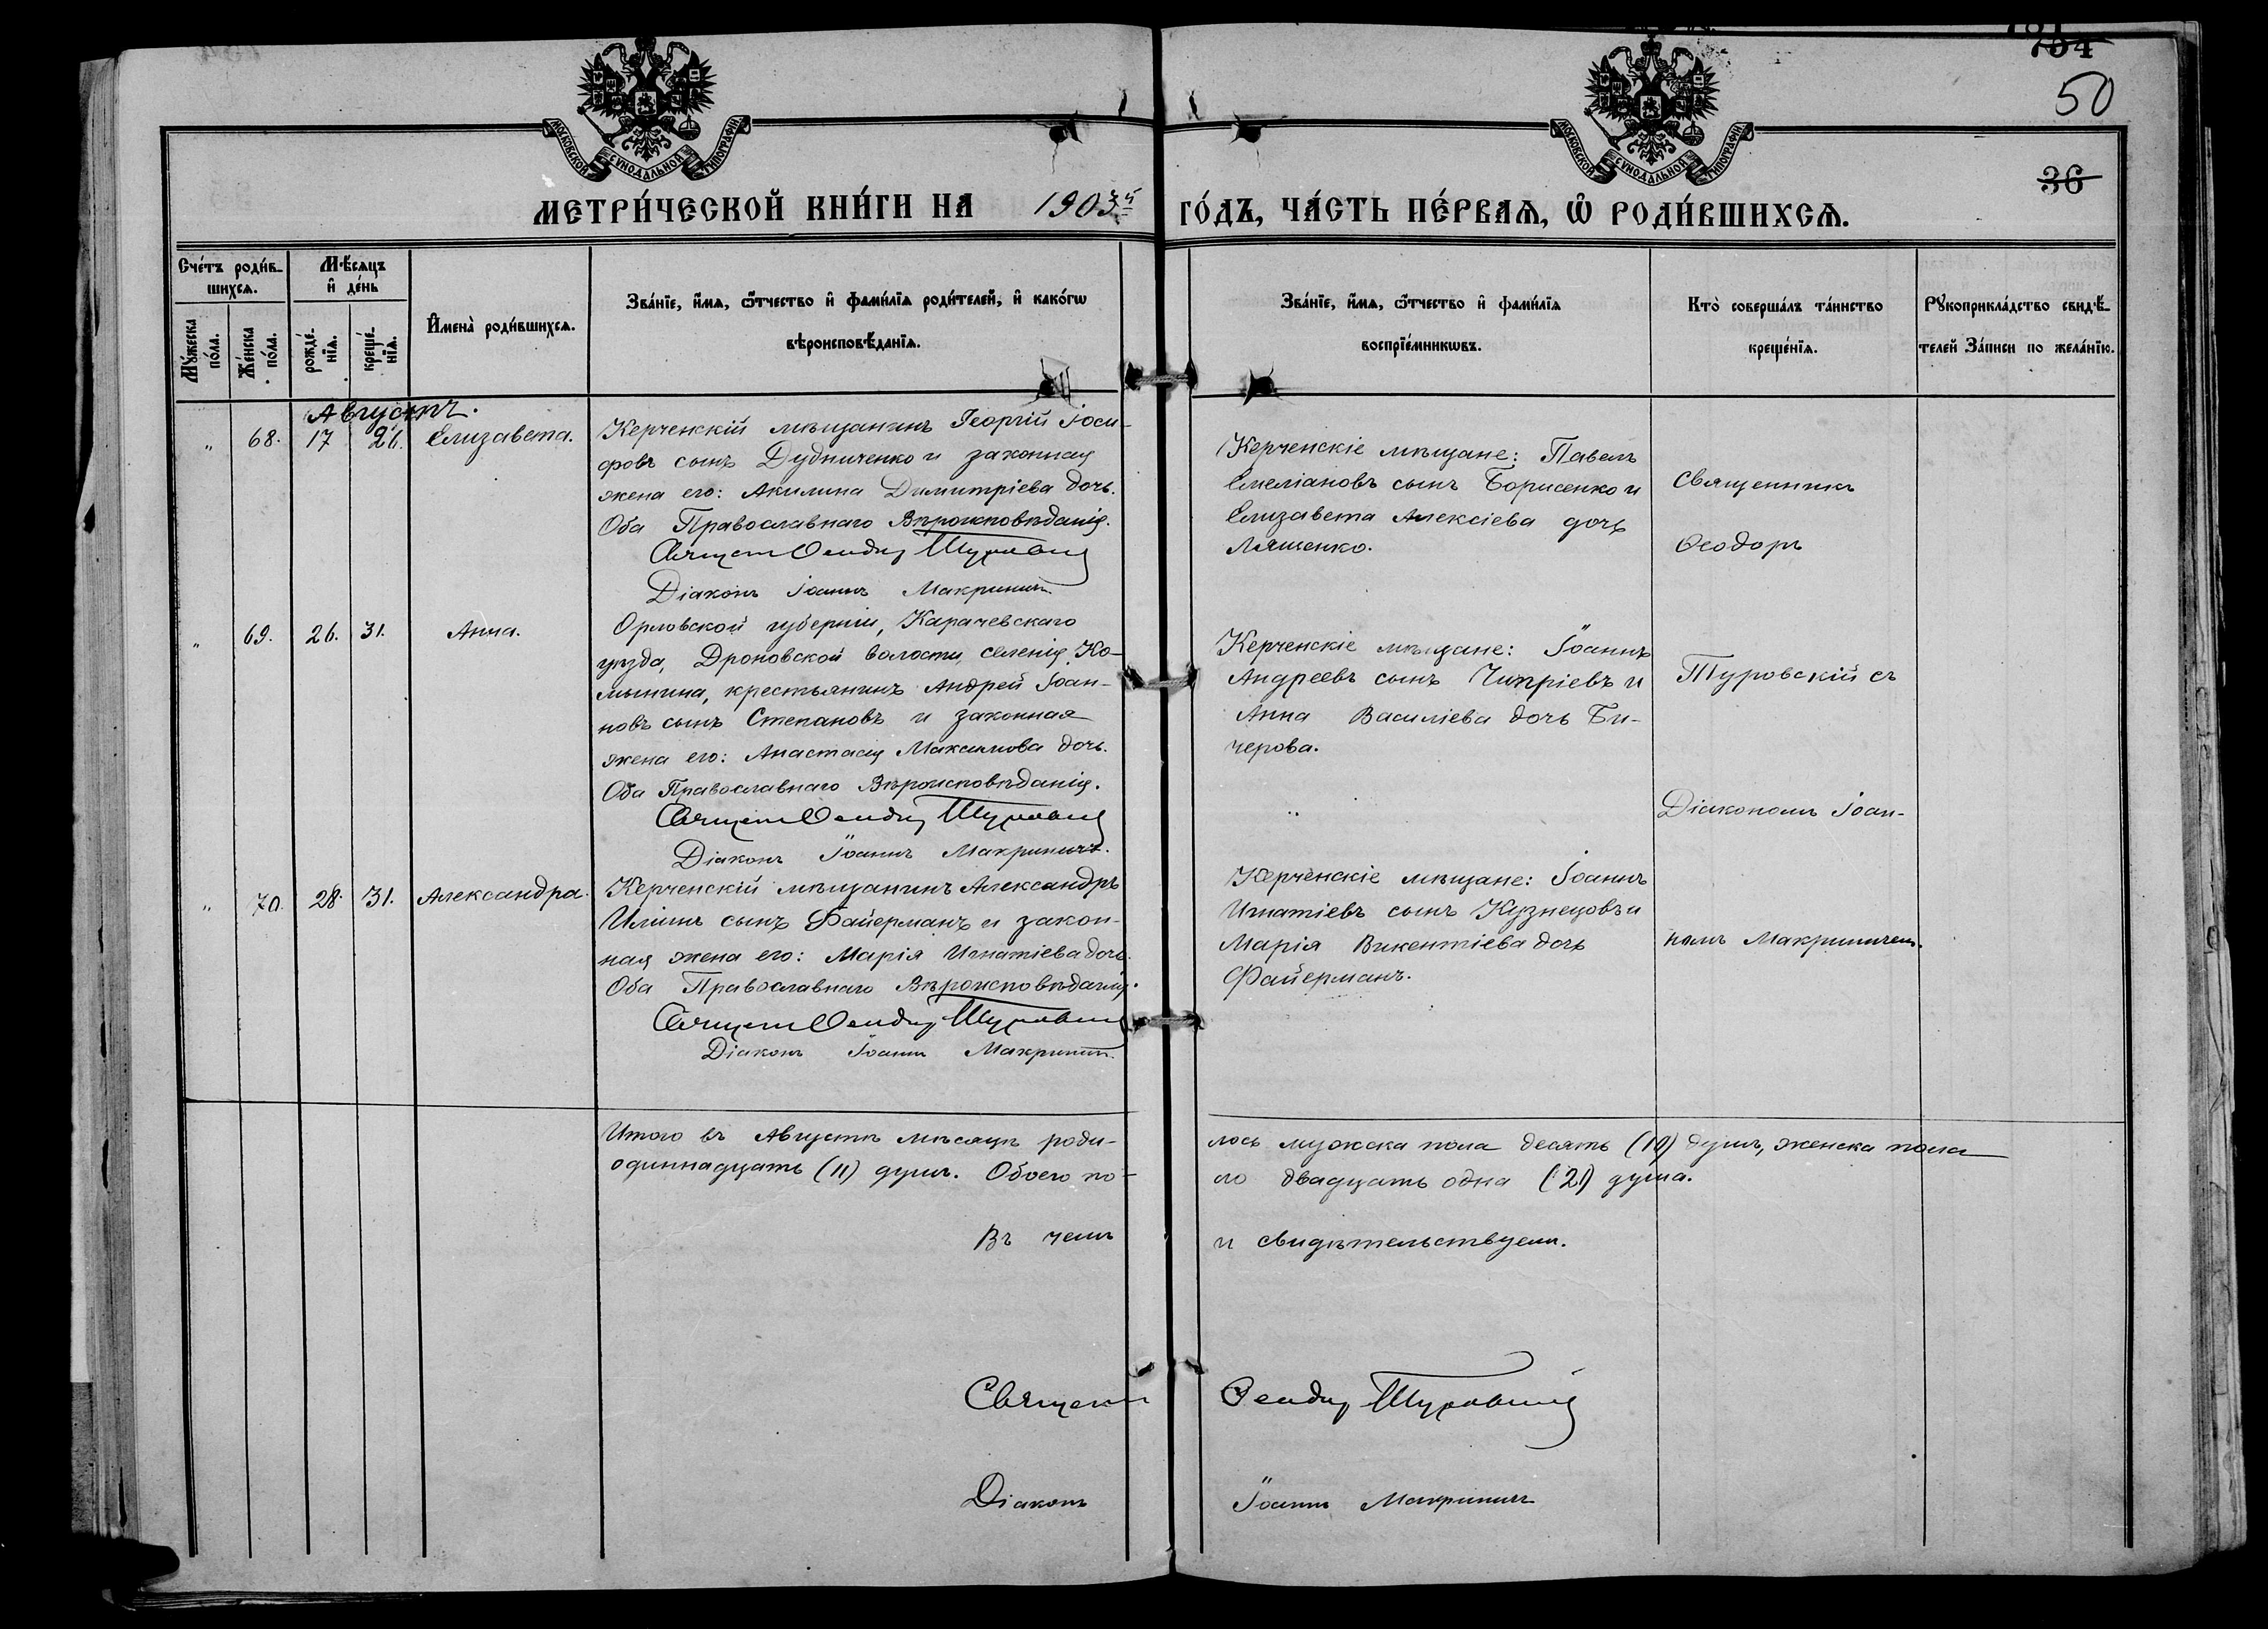 184
50
36
МОСКОВСКОЙ СУНОДАЛЬНОЙ ТИПОГРАФІИ
МОСКОВСКОЙ СУНОДАЛЬНОЙ ТИПОГРАФІИ
МЕТРИ́ЧЕСКОЙ КНИ́ГИ НА 1903й ГО́ДЪ, ЧА́СТЬ ПЕ́РВАЯ, Ѡ РОДИ́ВШИХСЯ.
Сче́тъ роди́в-
шихся.
Мѣ́сяцъ
и де́нь
Му́жеска
по́ла.
Же́нска
по́ла.
рожде́-
нія.
креще́-
нія.
Имена̀ роди́вшихся.
Зва́ніе, и́мя, ѻ́тчество и фами́лія роди́телей, и како́гѡ
вѣроисповѣ́данія.
Зва́ніе, и́мя, ѻ́тчество и фами́лія
воспріе́мникѡвъ.
Кто̀ соверша́лъ та́инство
креще́нія.
Рꙋкоприкла́дство свидѣ́-
телей за́писи по жела́нію.
Августъ.
„ 68. 17 26. Елизавета.
Керченскій мѣщанинъ Георгій Іоси-
фовъ сынъ Дудниченко и законная
жена его: Акилина Димитріева дочь.
Оба Православнаго Вѣроисповѣданія.
Священ Ѳеодоръ Туровскій
Діаконъ Іоаннъ Макриничъ
Керченскіе мѣщане: Павелъ
Емеліановъ сынъ Борисенко и
Елизавета Алексіева дочь
Ляшенко.
Священникъ
Ѳеодоръ
„ 69. 26. 31. Анна.
Орловской губерніи, Карачевскаго
уѣзда, Дроновской волости, селенія Ко-
мынина, крестьянинъ Андрей Іоан-
новъ сынъ Степановъ и законная
жена его: Анастасія Максимова дочь.
Оба Православнаго Вѣроисповѣданія.
Священ Ѳеодоръ Туровскій
Діаконъ Іоаннъ Макриничъ.
Керченскіе мѣщане: Іоаннъ
Андреевъ сынъ Чипріевъ и
Анна Василіева дочь Би-
черова.
Туровскій съ
Діакономъ Іоан-
„ 70. 28. 31. Александра.
Керченскій мѣщанинъ Александръ
Иліинъ сынъ Файерманъ и закон-
ная жена его: Марія Игнатіева дочь.
Оба Православнаго Вѣроисповѣданія.
Священ Ѳеодоръ Туровскій
Діаконъ Іоаннъ Макриничъ.
Керченскіе мѣщане: Іоаннъ
Игнатіевъ сынъ Кузнецовъ и
Марія Викентіева дочь
Файерманъ.
номъ Макриничемъ.
Итого въ Августѣ мѣсяцѣ роди-лось мужска пола десять (10) душъ, женска пола
одиннадцать (11) душъ. Обоего по-ло двадцать одна (21) душа.
Въ чемъ и свидѣтельствуемъ.
Священ Ѳеодоръ Туровскій
Діаконъ Іоаннъ Макриничъ